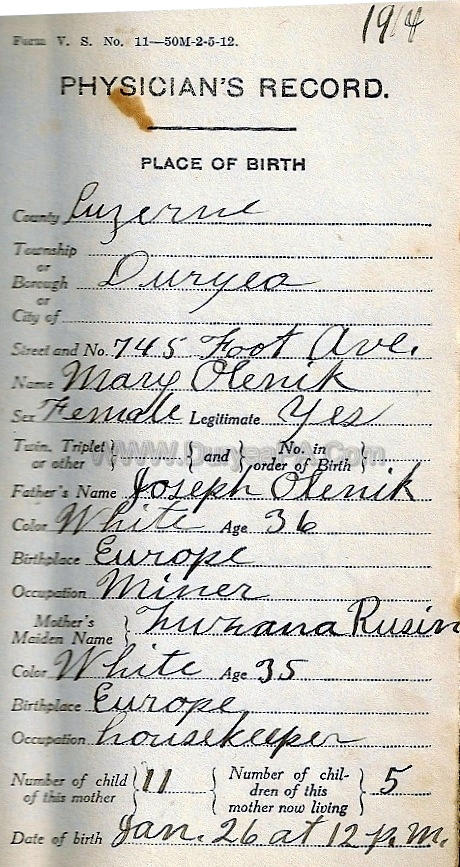 1914
Form V. S. No. 11—50M-2-5-12.
PHYSICIAN'S RECORD.
PLACE OF BIRTH
County Luzerne
Township
or
Borough Duryea
or
City of
Street and No. 745 Foot Ave.
Name Mary Olenik
Sex Female Legitimate Yes
Twin, Triplet or other } and { No. in order of Birth }
www.DuryeaPA.Com
Father's Name Joseph Olenik
Color White Age 36
Birthplace Europe
Occupation Miner
Mother's Maiden Name } Zuzana Rusin
Color White Age 35
Birthplace Europe
Occupation housekeeper
Number of child of this mother } 11 { Number of children of this mother now living } 5
Date of birth Jan. 26 at 12 p.m.